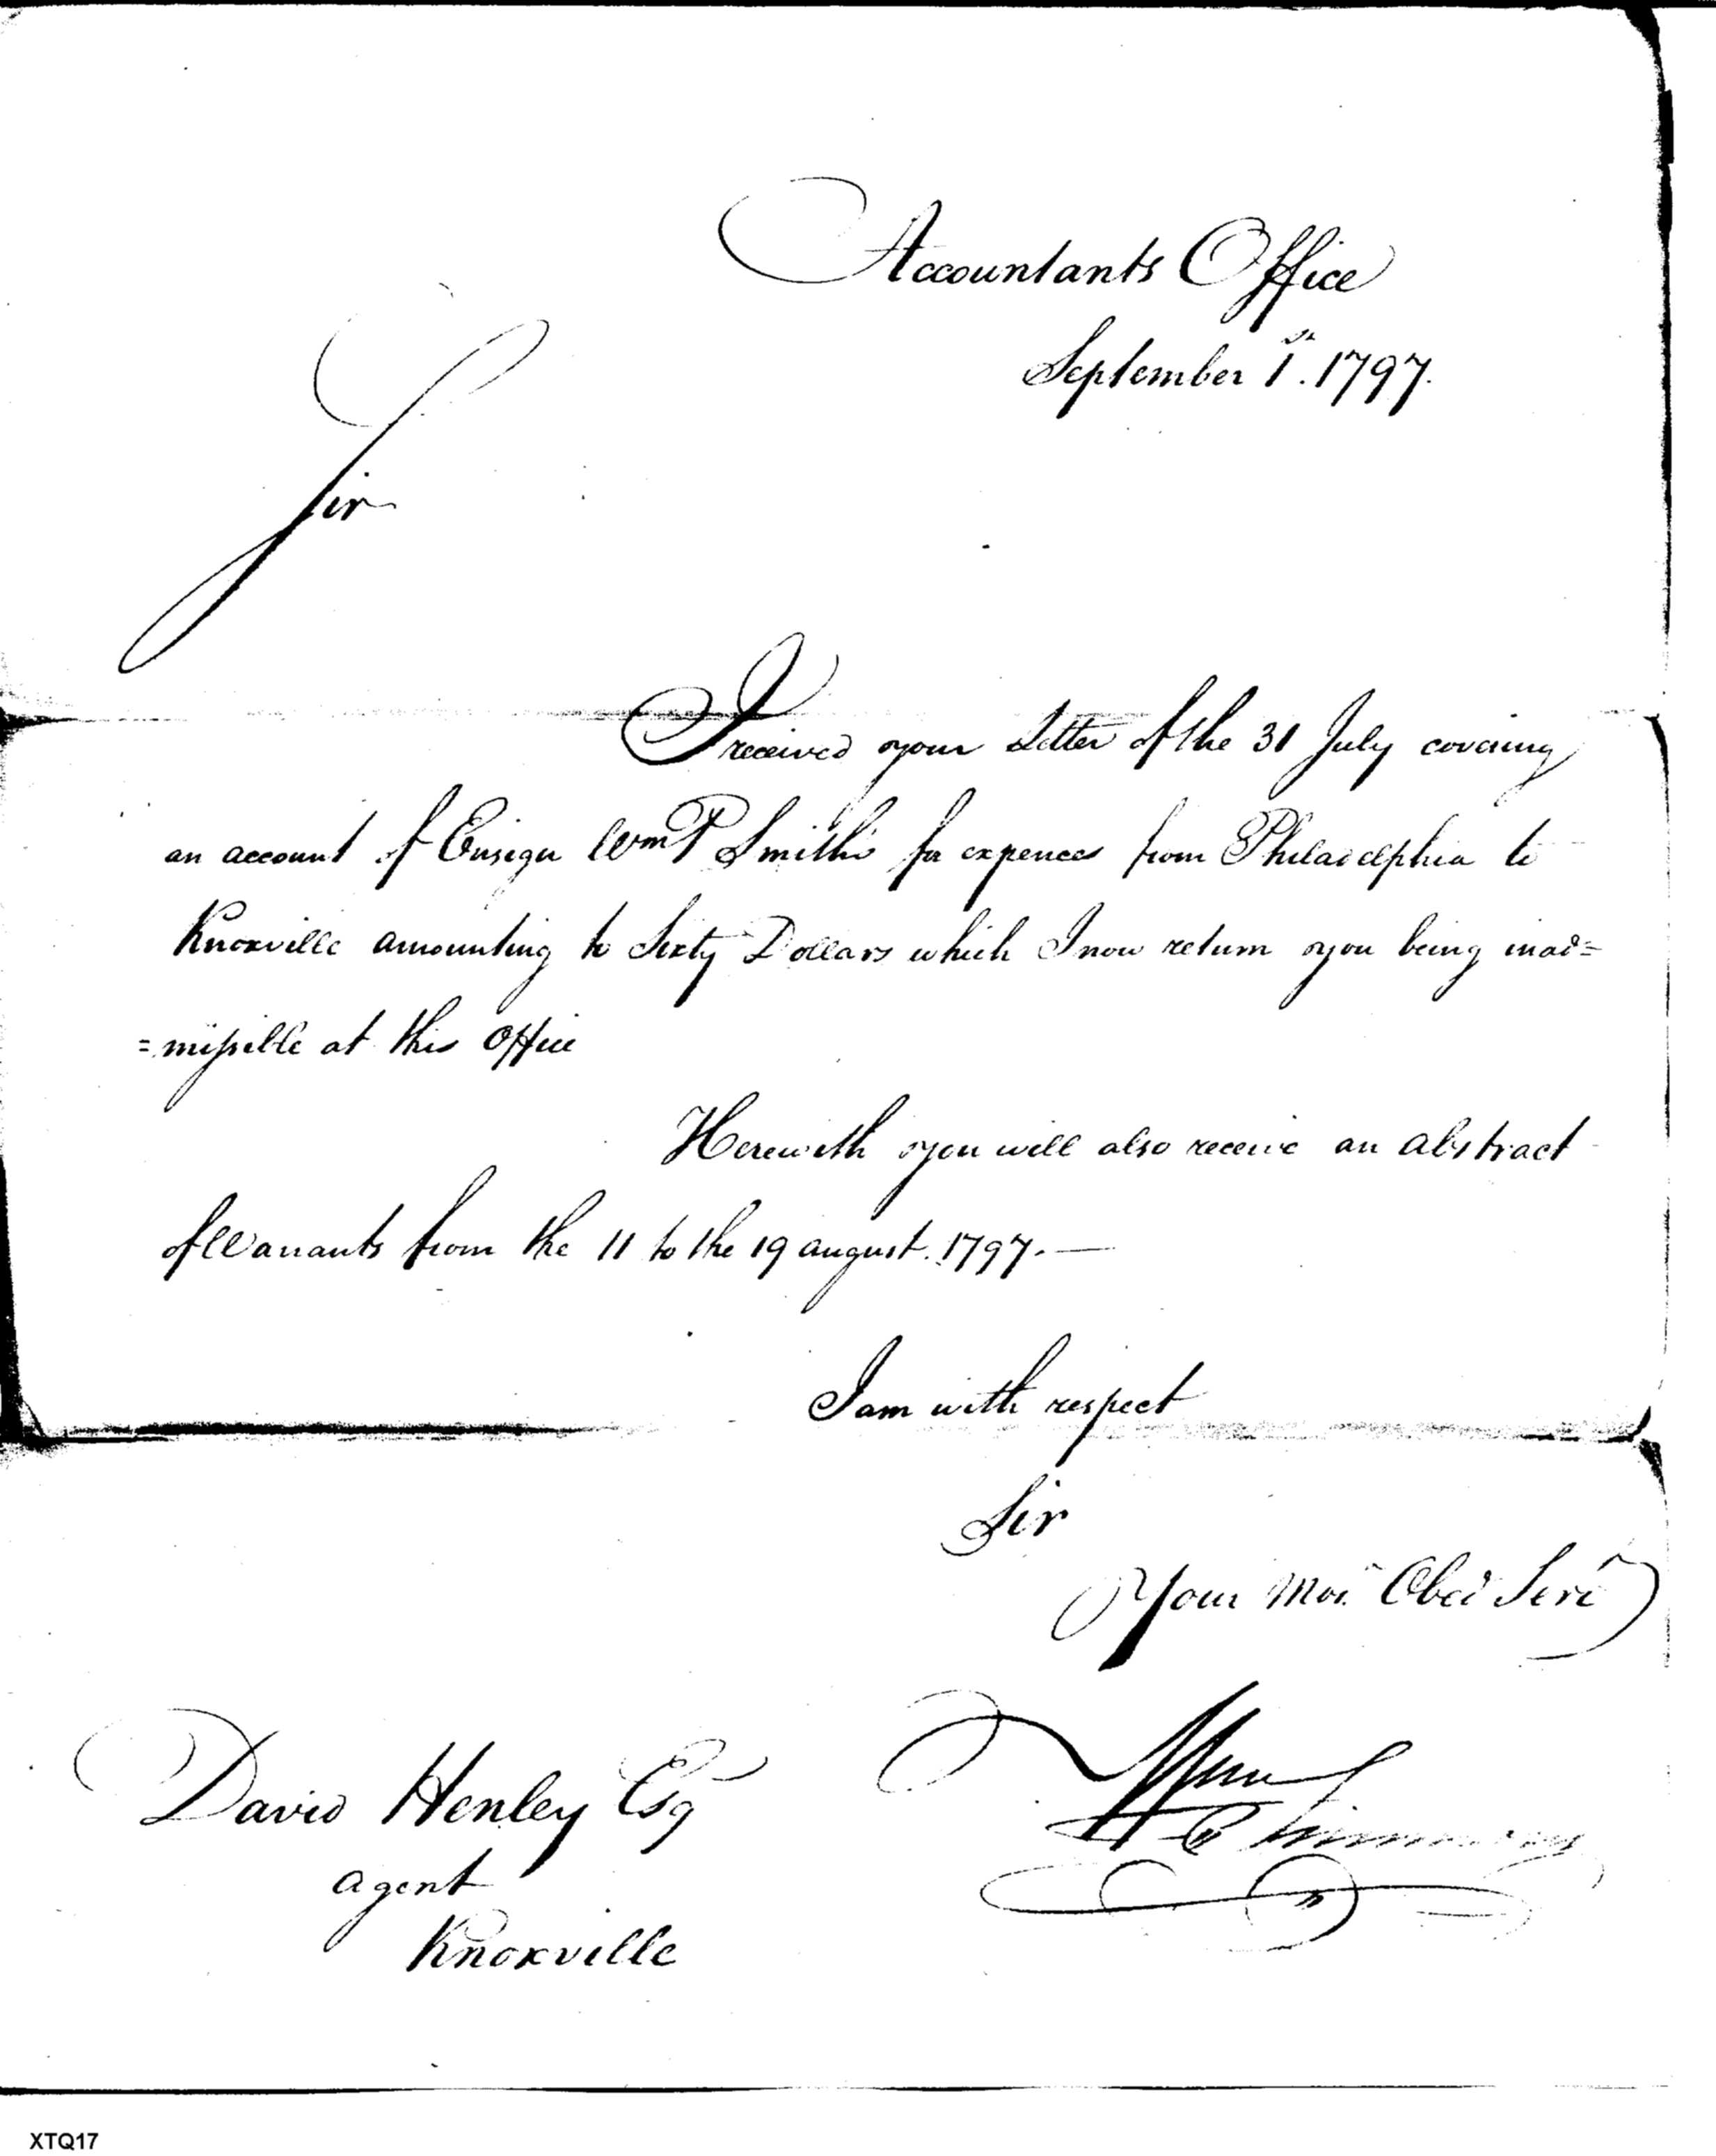 Accountants Office
September 1st. 1797.
Sir
I received your Letter of the 31 July covering
an account of Ensign Wm P Smith's for expences from Philadelphia to
Knoxville amounting to Sixty Dollars which I now return you being inad=
=missible at this Office
Herewith you will also receive an abstract
of Warrants from the 11 to the 19 august. 1797.—
I am with respect
Sir
Your Mot. Obed Servt
Wm Simmons
David Henley Esq
agent
Knoxville
XTQ17